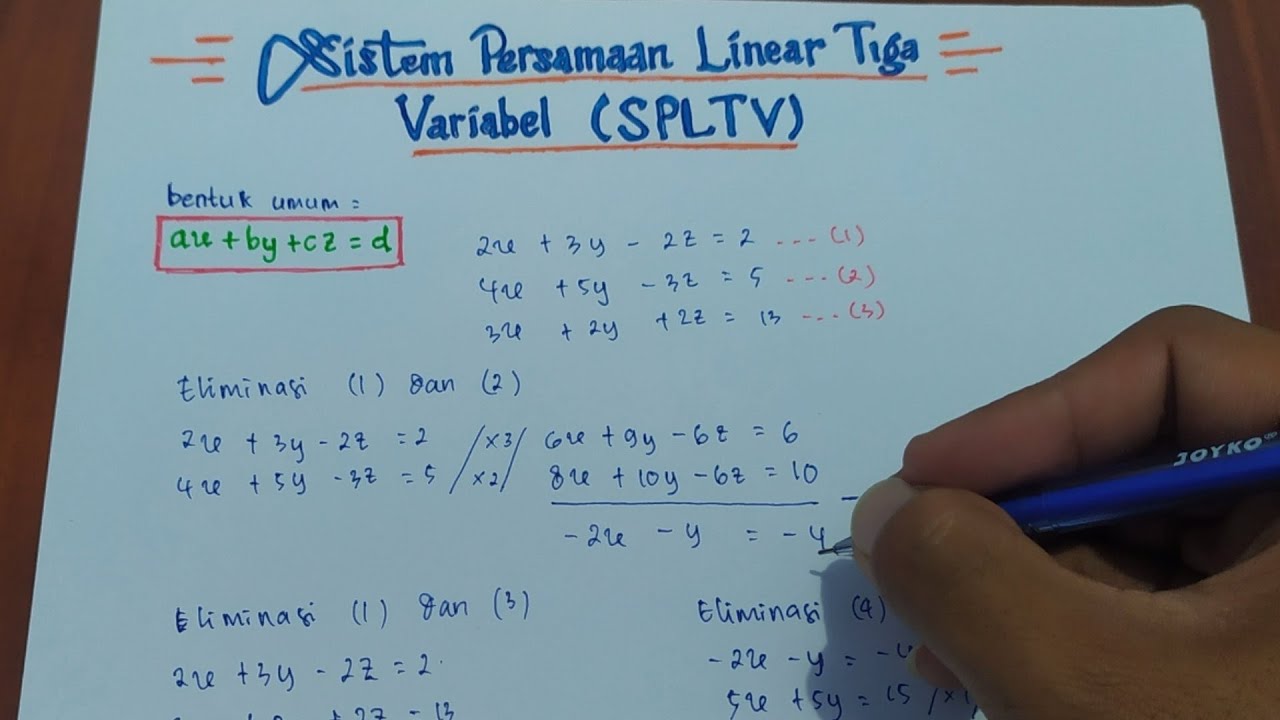 Sistem Persamaan Linear Tiga
Variabel (SPLTV)
bentuk umum =
ax + by + cz = d
2x + 3y - 2z = 2 --- (1)
4x + 5y - 3z = 5 --- (2)
3x + 2y + 2z = 13 --- (3)
Eliminasi (1) dan (2)
2x + 3y - 2z = 2 /x3/ 6x + 9y - 6z = 6
4x + 5y - 3z = 5 /x2/ 8x + 10y - 6z = 10
-2x - y = -4
Eliminasi (1) dan (3)
2x + 3y - 2z = 2
+ 2z = 13
Eliminasi (4)
-2x - y = -4
5x + 5y = 15 /x1
JOYKO